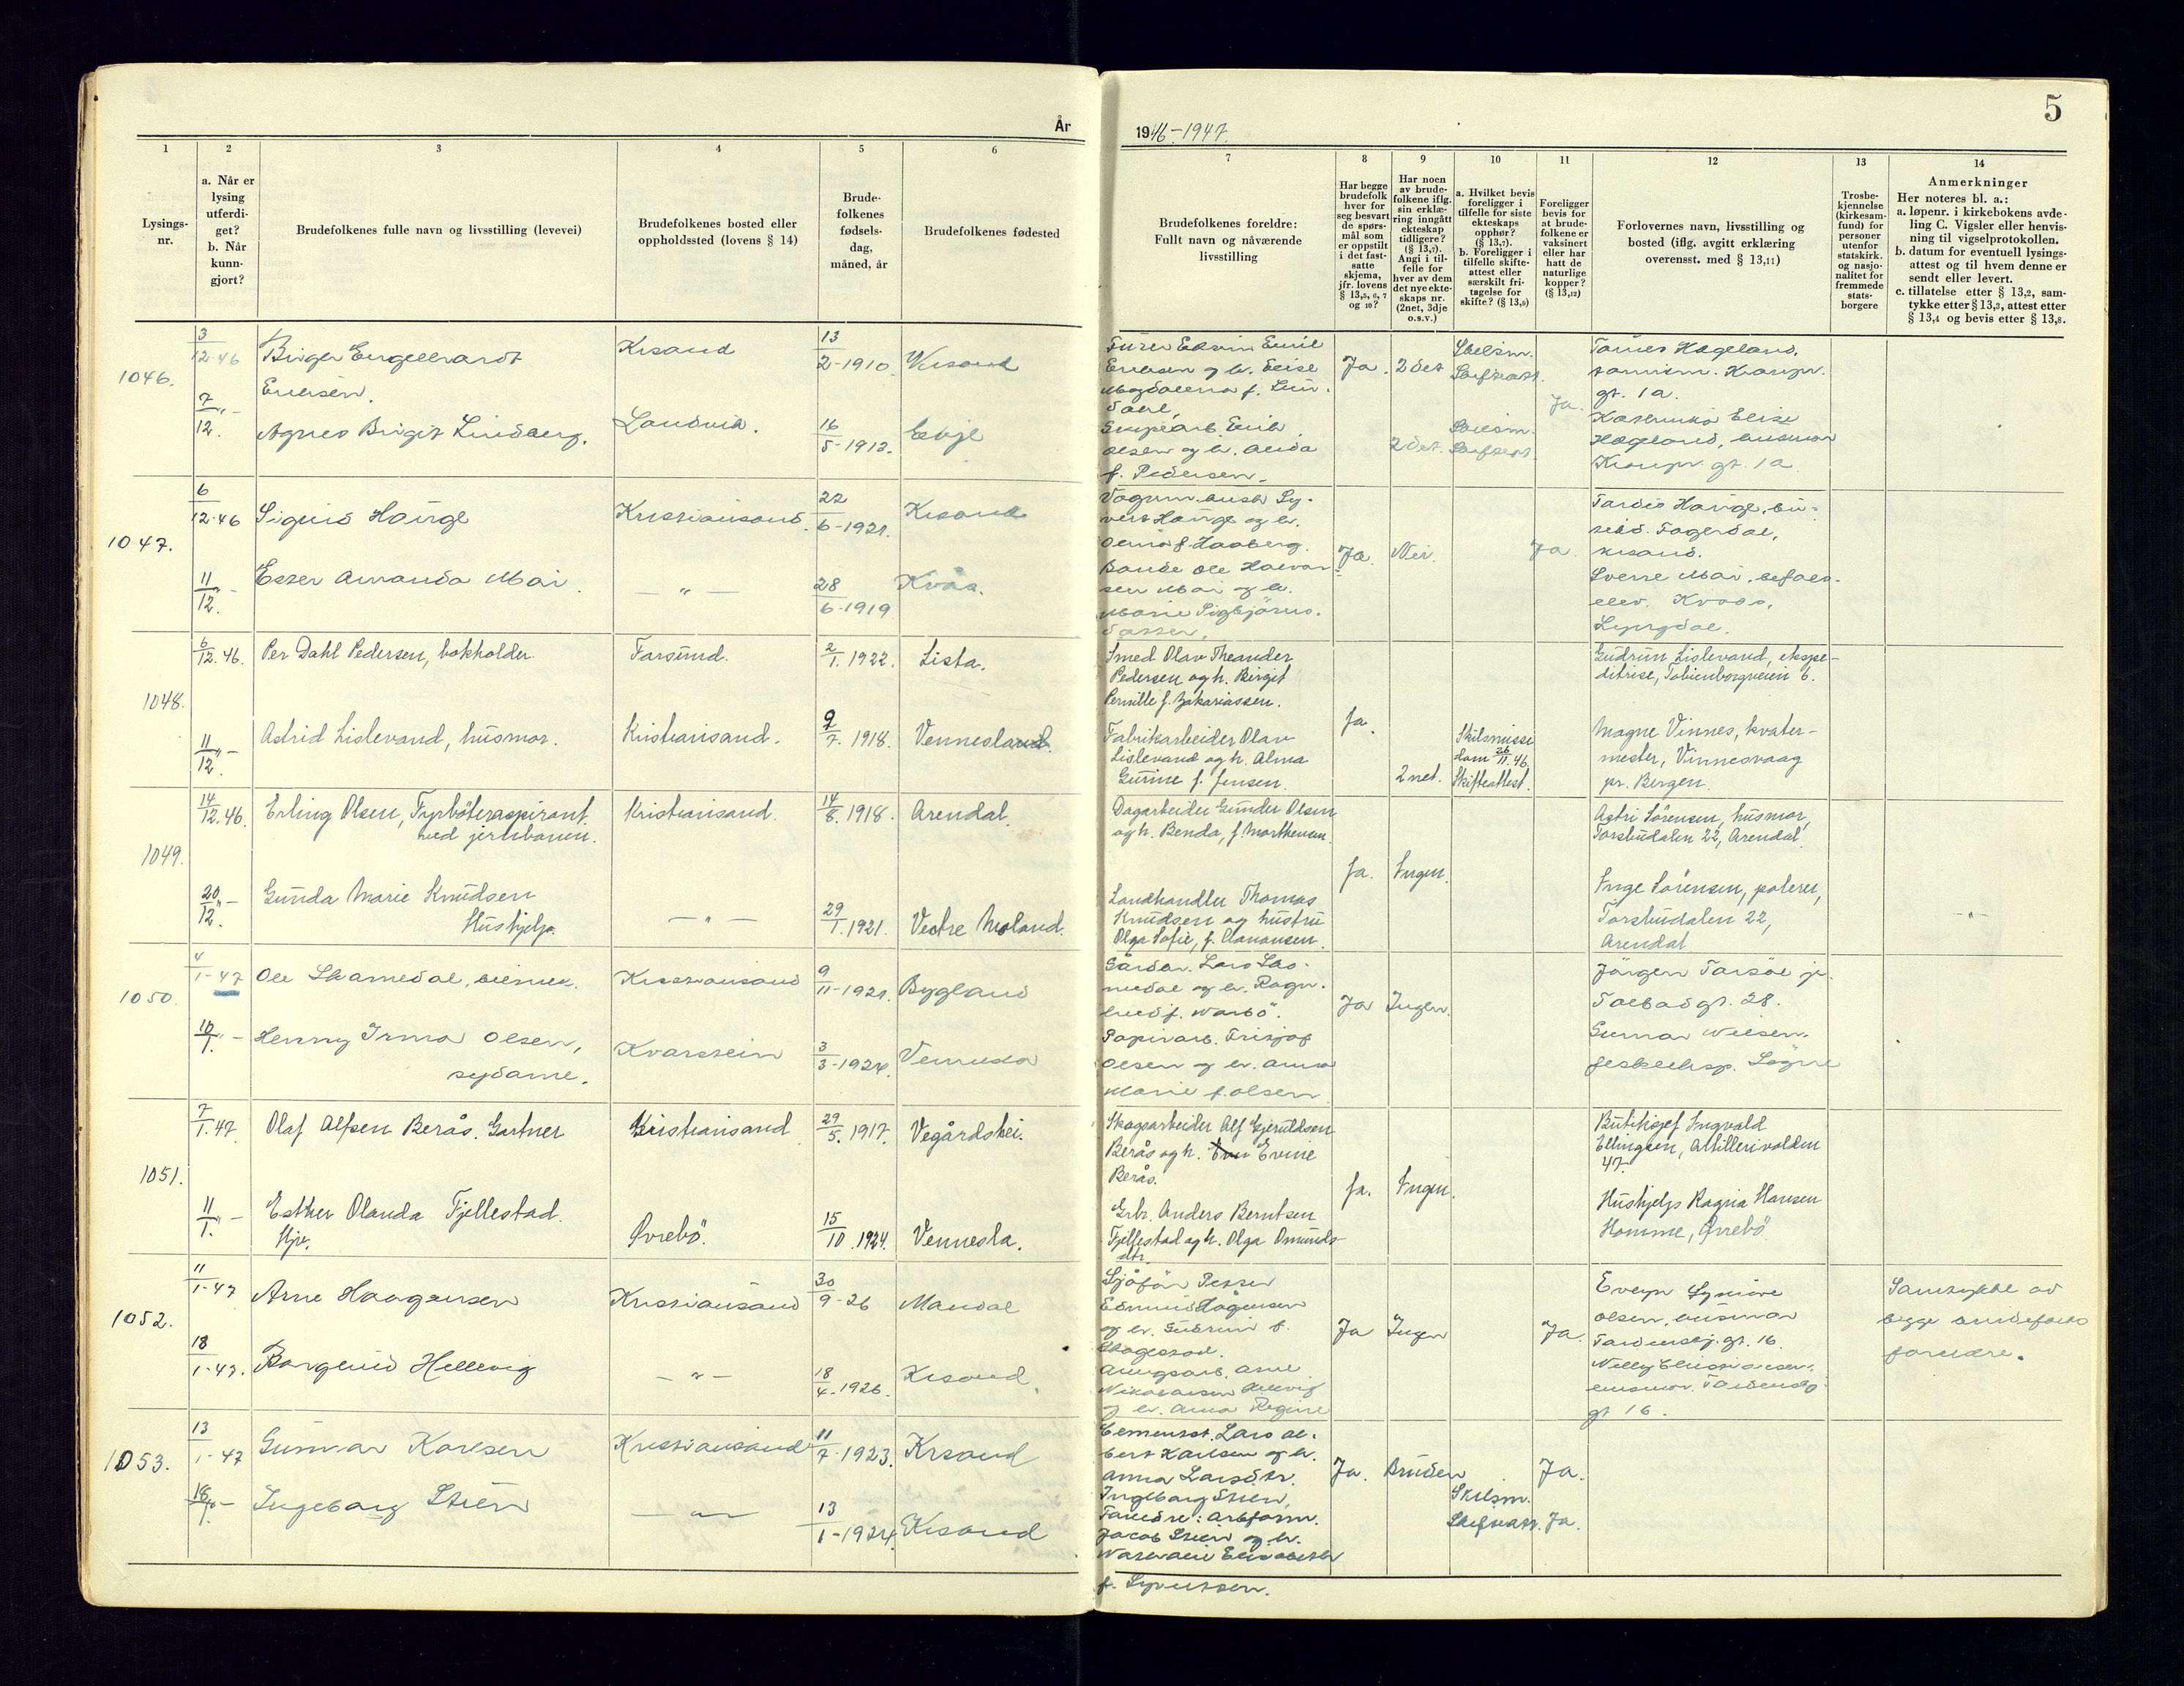 År
1946-1947.
5
1
2
3
4
5
6
7
8
9
10
11
12
13
14
Lysings-
nr.
a. Når er
lysing
utferdi-
get?
b. Når
kunn-
gjort?
Brudefolkenes fulle navn og livsstilling (levevei)
Brudefolkenes bosted eller
oppholdssted (lovens § 14)
Brude-
folkenes
fødsels-
dag,
måned, år
Brudefolkenes fødested
Brudefolkenes foreldre:
Fullt navn og nåværende
livsstilling
Har begge
brudefolk
hver for
seg besvart
de spørs-
mål som
er oppstilt
i det fast-
satte
skjema,
jfr. lovens
§ 13,5, 6, 7
og 10?
Har noen
av brude-
folkene iflg.
sin erklæ-
ring inngått
ekteskap
tidligere?
(§ 13,7).
Angi i til-
felle for
hver av dem
det nye ekte-
skaps nr.
(2net, 3dje
o.s.v.)
a. Hvilket bevis
foreligger i
tilfelle for siste
ekteskaps
opphør?
(§ 13,7).
b. Foreligger i
tilfelle skifte-
attest eller
særskilt fri-
tagelse for
skifte? (§ 13,9)
Foreligger
bevis for
at brude-
folkene er
vaksinert
eller har
hatt de
naturlige
kopper?
(§ 13,12)
Forlovernes navn, livsstilling og
bosted (iflg. avgitt erklæring
overensst. med § 13,11)
Trosbe-
kjennelse
(kirkesam-
fund) for
personer
utenfor
statskirk.
og nasjo-
nalitet for
fremmede
stats-
borgere
Anmerkninger
Her noteres bl. a.:
a. løpenr. i kirkebokens avde-
ling C. Vigsler eller henvis-
ning til vigselprotokollen.
b. datum for eventuell lysings-
attest og til hvem denne er
sendt eller levert.
c. tillatelse etter § 13,2, sam-
tykke etter § 13,3, attest etter
§ 13,4 og bevis etter § 13,8.
1046.
3/12-46
Birger Engelhardt
Eriksen.
Krsand
13/2-1910
Krsand
Edvin Emil
Eriksen og h. Elise
Magdalena f.
Ja.
2det
Skilsm.
Skifteatt.
Ja.
Hægeland,
gt. 1a.
7/12.
Agnes Birgit Lindberg.
Landvik.
16/5-1912.
Evje
Emil
Olsen og h. Alida
f. Pedersen.
2det.
Skilsm.
Skifteatt.
Elise
Hægeland, husmor
gt. 1a
1047.
6/12-46
Sigurd Hauge
Kristiansand.
22/6-1921.
Krsand
Sy-
vert Hauge og h.
f. Haaberg.
Ja.
Nei.
Ja.
Hauge,
Fagerdal,
Krsand.
11/12.
Ester Amanda Moi
— " —
28/6-1919
Kvås.
Bonde Ole Halvor-
sen Moi og h.
Marie Sigbjörns-
datter.
Sverre Moi, befals-
elev. Kvaas,
Lyngdal.
1048.
6/12.46.
Per Dahl Pedersen, bokholder
Farsund.
2/1.1922.
Lista.
Smed Olav Theander
Pedersen og h. Birgit
Pernille f. Zakariassen.
Ja.
Gudrun Lislevand, ekspe-
ditrise, Tobienborgveien 6.
11/12
Astrid Lislevand, husmor.
Kristiansand.
9/7.1918.
Vennesland.
Fabrikarbeider Olav
Lislevand og h. Alma
Gurine f. Jensen.
2net.
Skilsmisse
dom 26/11.46.
Skifteattest.
Magne Vinnes, kvater-
mester, Vinnesvaag
pr. Bergen.
1049.
14/12.46.
Erling Olsen, Fyrböteraspirant
ved jernbanen.
Kristiansand.
14/8.1918.
Arendal.
Dagarbeider Gunder Olsen
og h. Benda, f. Marthensen
Ja.
Ingen.
Astri Sörensen, husmor,
Torsbudalen 22, Arendal.
20/12.
Gunda Marie Knudsen
Hushjelp.
— " —
29/1.1921.
Vestre Moland.
Landhandler Thomas
Knudsen og hustru
Olga Sofie, f. Aanonsen.
Inge Sörensen, polerer,
Torsbudalen 22,
Arendal
— " —
1050.
4/1-47
Ole Skamedal, bilmek.
Kristiansand
9/11-1921.
Bygland
Gårdbr. Lars Ska-
medal og h. Ragn-
hild f.
Ja
Ingen.
Jörgen
Tolbodgt. 28.
10/1.
Henny Irma Olsen,
sydame.
Kvarstein
3/3-1924.
Vennesla
Papirarb. Fritjof
Olsen og h. Anna
Marie f. Olsen
Gunnar Nilsen.
Sögne
1051.
7/1.47.
Olaf Alfsen Berås. Gartner
Kristiansand
29/5.1917.
Vegårdshei.
Skogsarbeider Alf Gjeruldsen
Berås og h. Evine
Berås.
Ja.
Ingen.
Butiksjef Ingvald
Ellingsen, Artillerivolden
47.
11/1.
Esther Olanda Fjellestad.
Hjv.
Øvrebö.
15/10.1924.
Vennesla.
Grbr. Anders Berntsen
Fjellestad og h. Olga Omunds-
dtr.
Hushjelp Ragna Hansen
Homme, Øvrebö.
1052.
11/1-47
Arne Haagensen
Kristiansand
30/9-26
Mandal
Sjåfør Petter
Edmund Hågensen
og h. Gudrun f.
Skagestad.
Ja
Ingen
Ja.
Evelyn
Olsen, husmor
gt. 16.
Samtykke av
begge brudefolks
foreldre.
18/1-47.
Borghild Hellevig
— " —
18/4-1926.
Krsand.
Arne
Nikolaisen Hellevig
og h. Anna Regine
Nelly Christiansen,
husmor.
gt 16.
1053.
13/1-47
Gunnar Karlsen
Kristiansand
11/7-1923.
Krsand
Lars Al-
bert Karlsen og h.
Anna Larsdtr.
Ja.
Bruden
Ja.
18/1
Ingeborg Stien
— " —
13/1-1924.
Krsand
Ingeborg Stien,
Foreldre: Arbform.
Jacob Stien og h.
Elisabeth
f. Syvertsen.
Skilsm.
Skifteatt.
Ja.